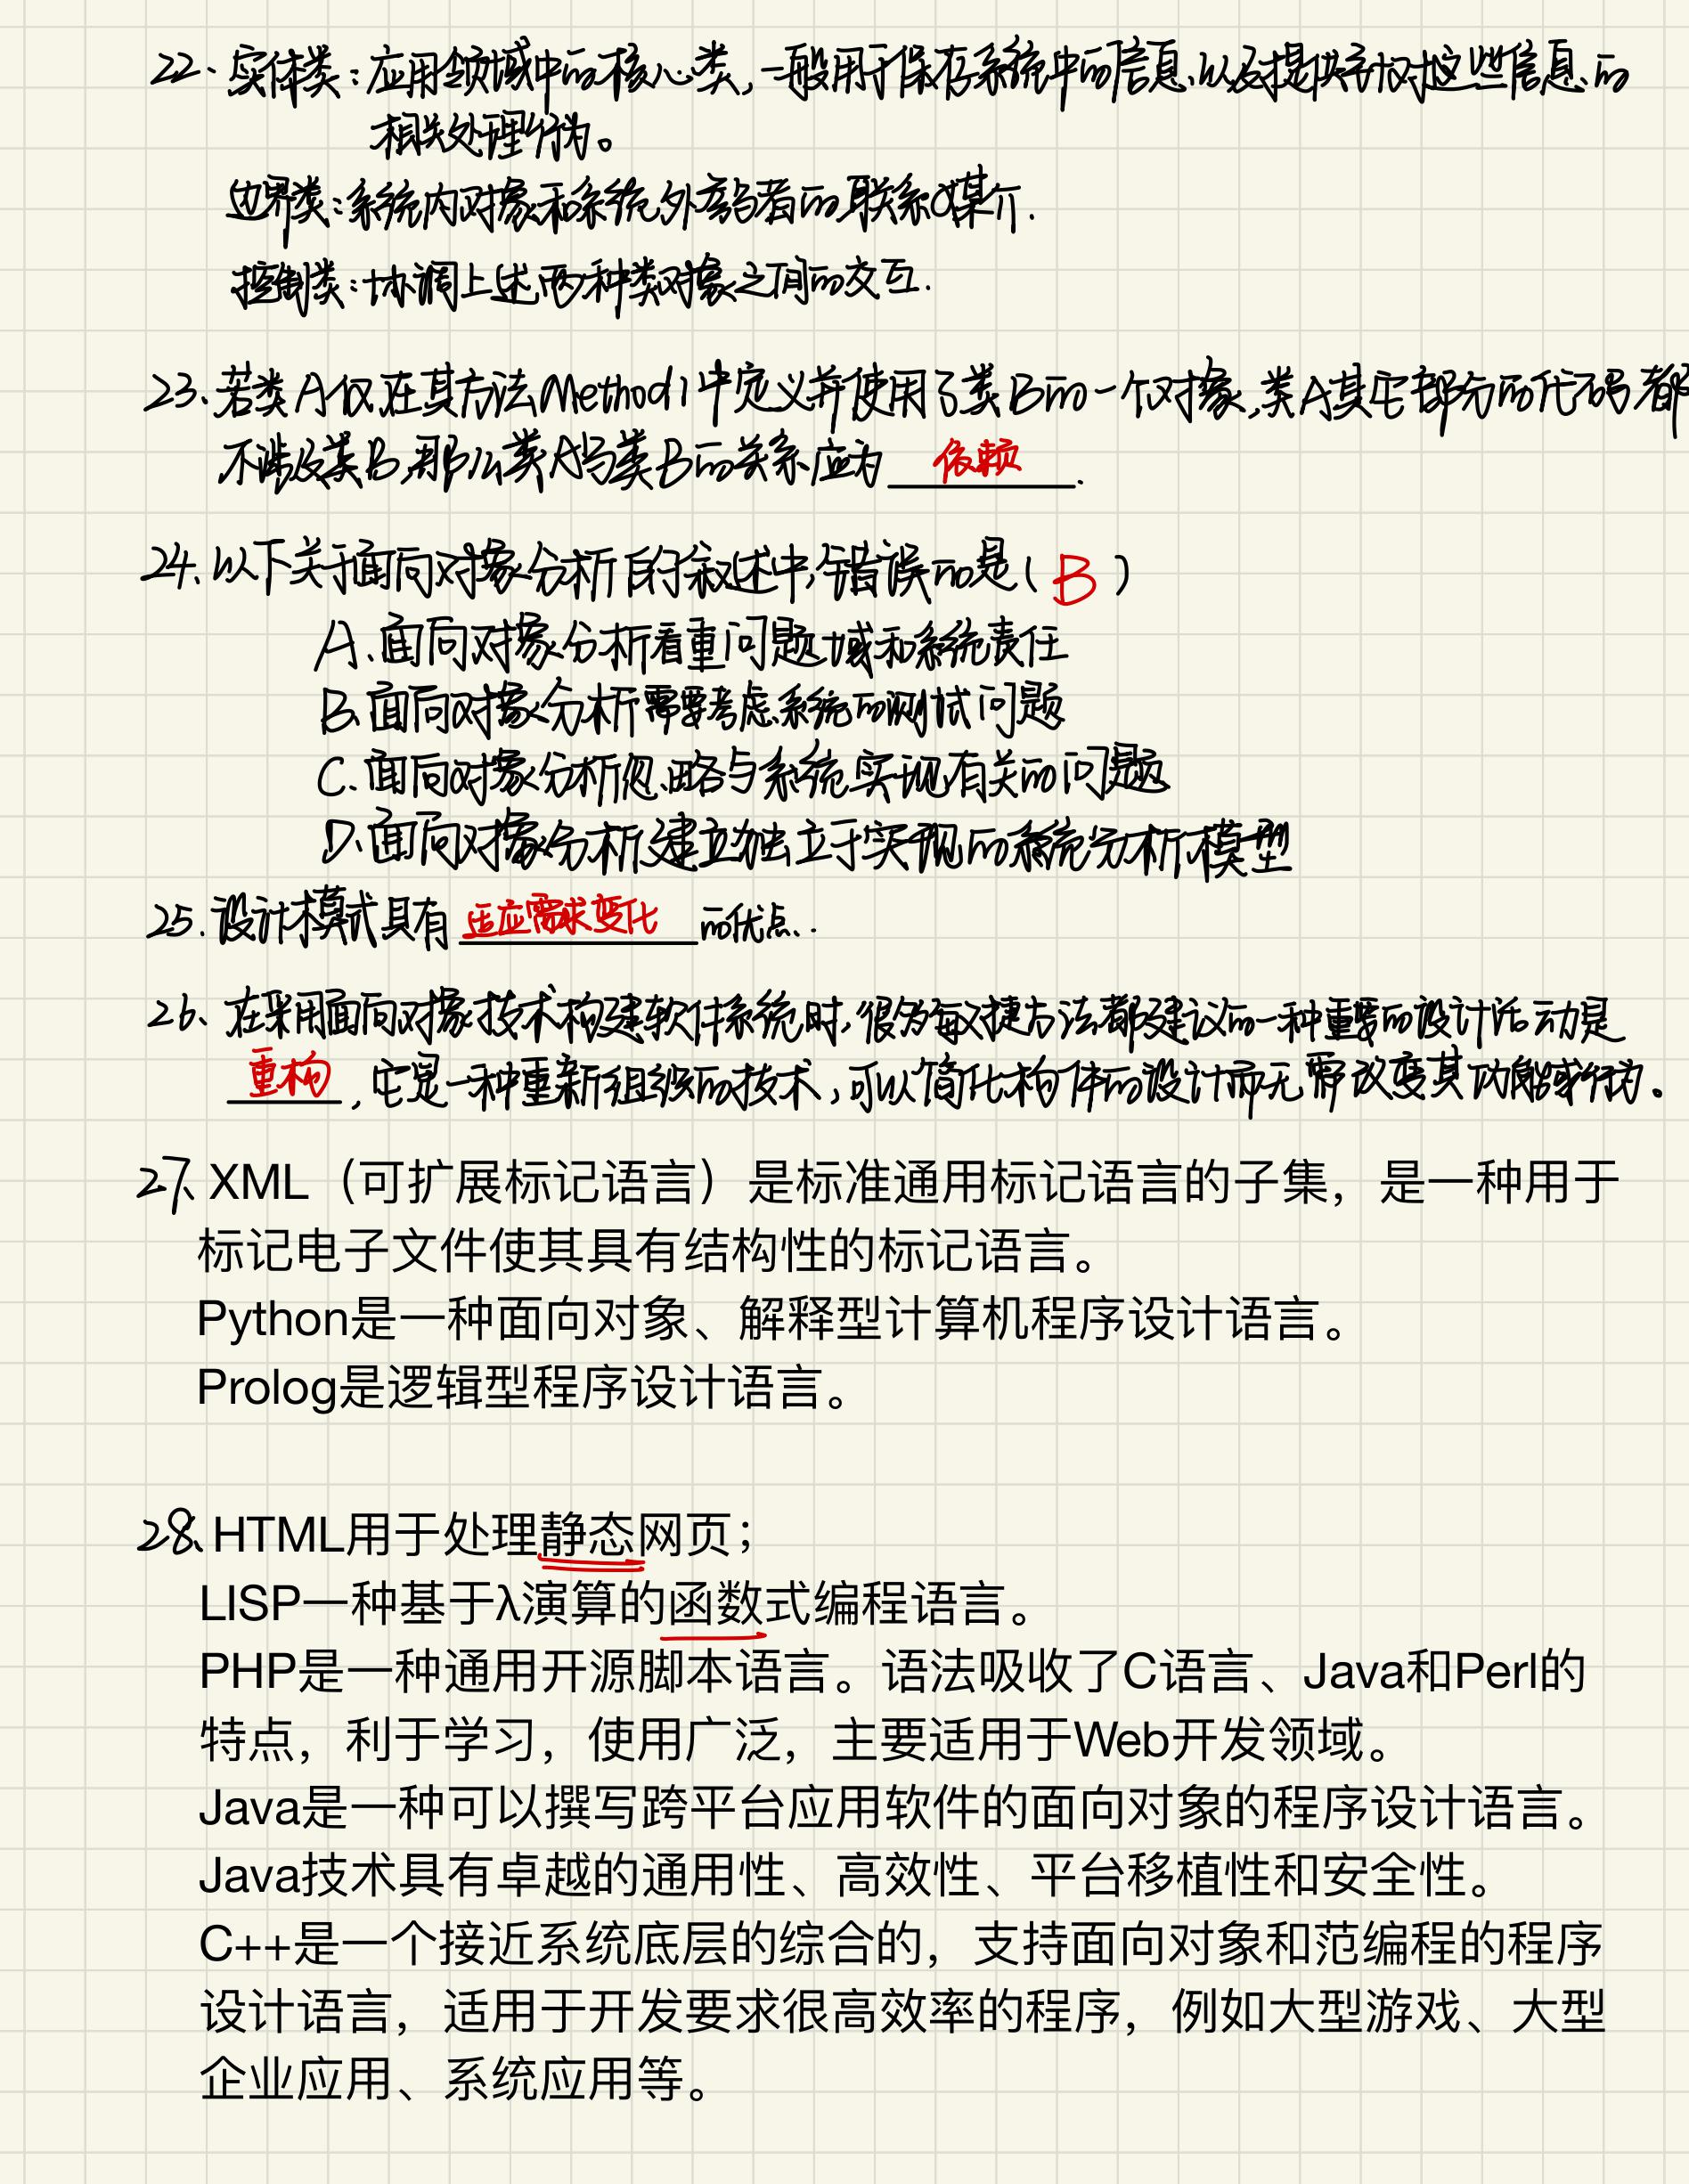 22. 实体类：应用领域中的核心类，一般用于保存系统中的信息以及提供针对这些信息的
相关处理行为。
边界类：系统内对象和系统外参与者的联系媒介.
控制类：协调上述两种类对象之间的交互.
23. 若类A仅在其方法Method1中定义并使用了类B的一个对象，类A其它部分的代码都
不涉及类B，那么类A与类B的关系应为 依赖 .
24. 以下关于面向对象分析的叙述中，错误的是（ B ）
A. 面向对象分析着重问题域和系统责任
B. 面向对象分析需要考虑系统的测试问题
C. 面向对象分析忽略与系统实现有关的问题
D. 面向对象分析建立独立于实现的系统分析模型
25. 设计模式具有 适应需求变化 的优点.
26、在采用面向对象技术构建软件系统时，很多敏捷方法都建议的一种重要的设计活动是
重构 ，它是一种重新组织的技术，可以简化构件的设计而无需改变其功能或行为。
27、XML（可扩展标记语言）是标准通用标记语言的子集，是一种用于
标记电子文件使其具有结构性的标记语言。
Python是一种面向对象、解释型计算机程序设计语言。
Prolog是逻辑型程序设计语言。
28、HTML用于处理静态网页；
LISP一种基于λ演算的函数式编程语言。
PHP是一种通用开源脚本语言。语法吸收了C语言、Java和Perl的
特点，利于学习，使用广泛，主要适用于Web开发领域。
Java是一种可以撰写跨平台应用软件的面向对象的程序设计语言。
Java技术具有卓越的通用性、高效性、平台移植性和安全性。
C++是一个接近系统底层的综合的，支持面向对象和范编程的程序
设计语言，适用于开发要求很高效率的程序，例如大型游戏、大型
企业应用、系统应用等。